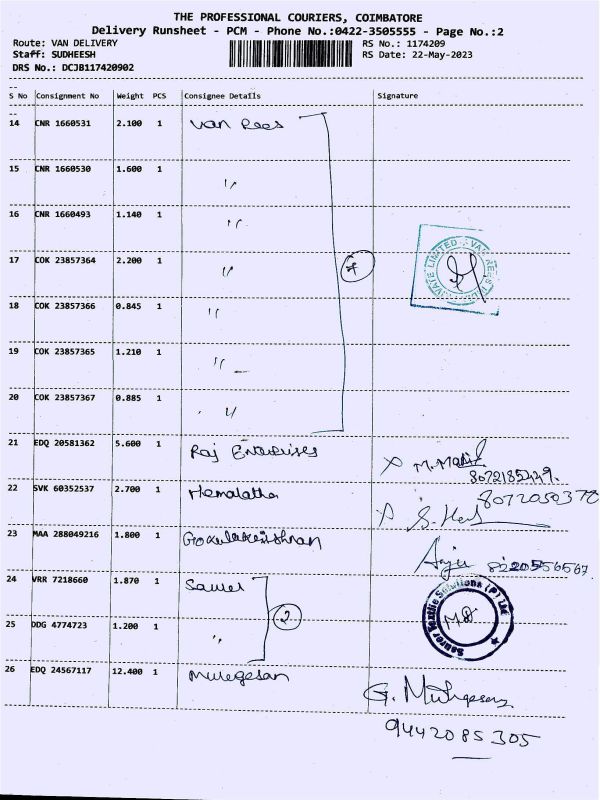 THE PROFESSIONAL COURIERS, COIMBATORE
Delivery Runsheet - PCM - Phone No.:0422-3505555 - Page No.:2
Route: VAN DELIVERY RS No.: 1174209
Staff: SUDHEESH RS Date: 22-May-2023
DRS No.: DCJB117420902
S No Consignment No Weight PCS Consignee Details Signature
14 CNR 1660531 2.100 1 Van Rees
15 CNR 1660530 1.600 1 "
16 CNR 1660493 1.140 1 "
17 COK 23857364 2.200 1 " 7
18 COK 23857366 0.845 1 "
19 COK 23857365 1.210 1 "
20 COK 23857367 0.885 1 "
21 EDQ 20581362 5.600 1 Raj Enterprises
8072185449.
22 SVK 60352537 2.700 1 Hemalatha
23 MAA 288049216 1.800 1 Gokulakrishnan
24 VRR 7218660 1.870 1
25 DDG 4774723 1.200 1 " 2
26 EDQ 24567117 12.400 1 Murugesan
9442085305